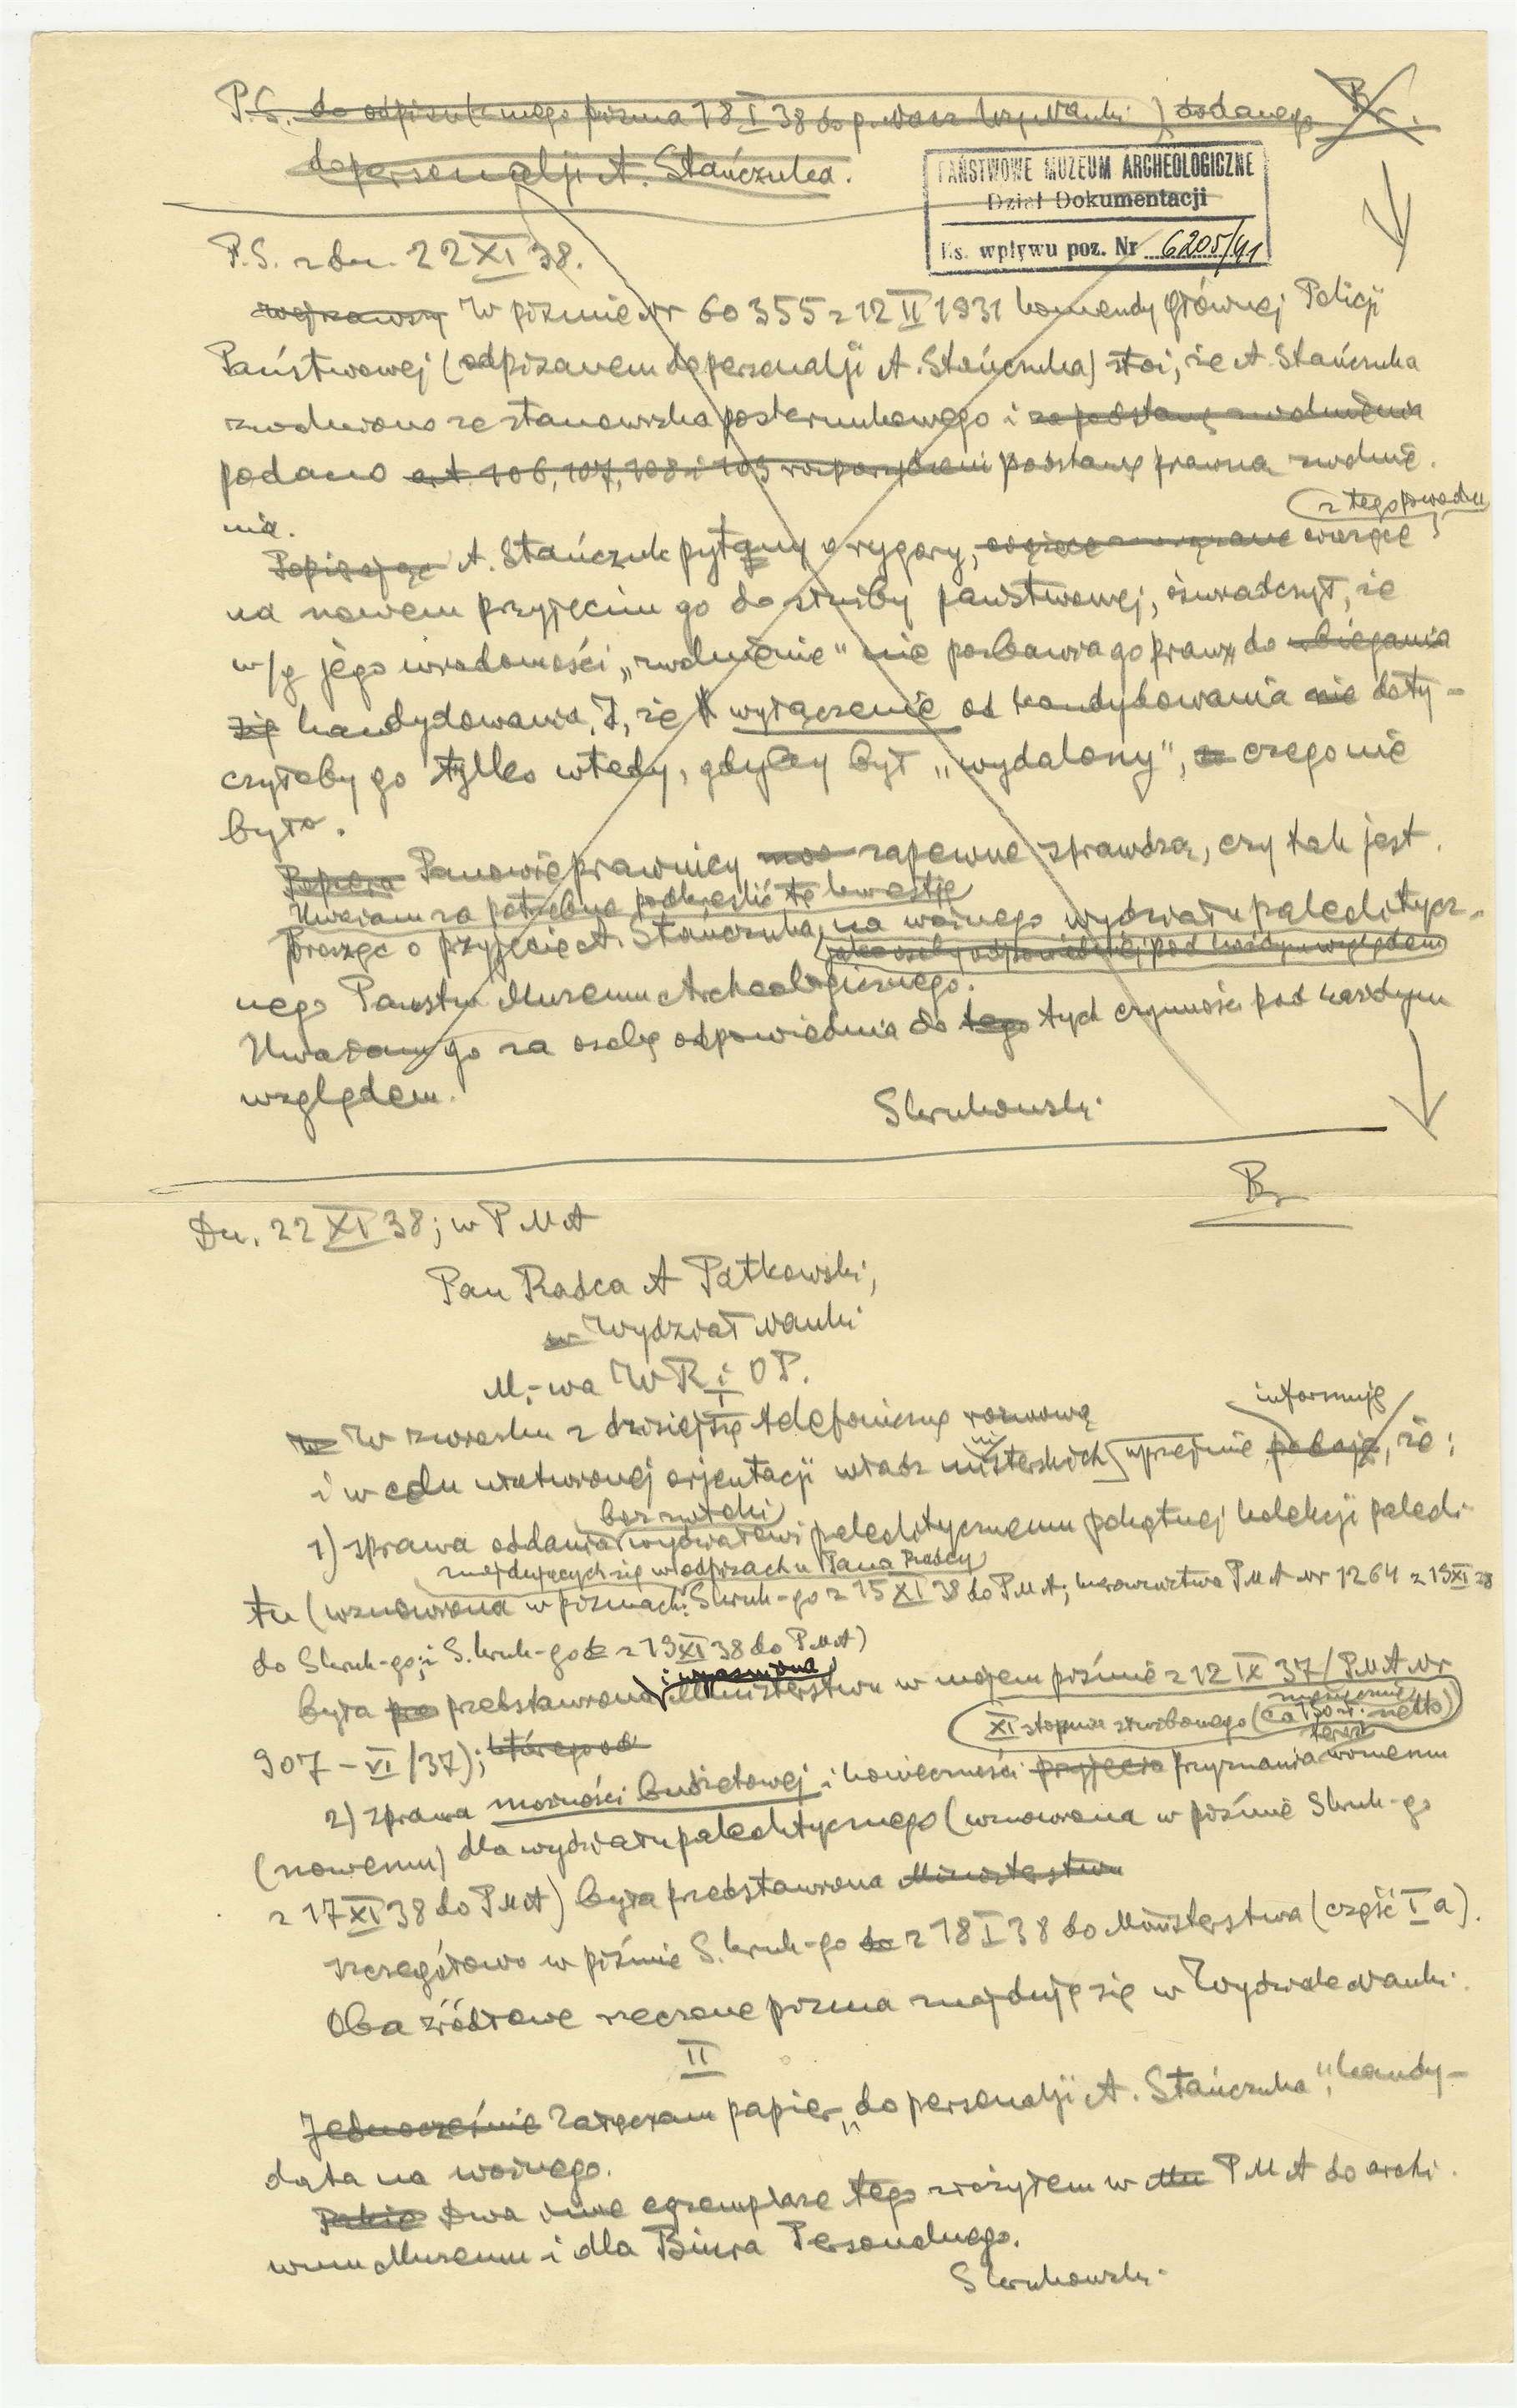 P.S. do odpisu (mego pisma 18 I 38 do p. Nauki) dodanego Br.
do personalji A. Stańczuka.
PAŃSTWOWE MUZEUM ARCHEOLOGICZNE
Dział Dokumentacji
Ks. wpływu poz. Nr 6205/41
P.S. z dn. 22 XI 38.
W piśmie Nr 60355 z 12 II 1931 Komendy Głównej Policji
Państwowej (odpisanem do personalji A. Stańczuka) stoi, że A. Stańczuka
zwolniono ze stanowiska posterunkowego i za podstawę zwolnienia
podano art. 106, 107, 108 i 109 rozporządzeni podstawę prawną zwolnie-
nia.
z tego powodu
Popierając A. Stańczuk pytany o rygory, ciążące
na nowem przyjęciu go do służby państwowej, oświadczył, że
w/g jego wiadomości „zwolnienie" nie pozbawia go prawa do ubiegania
się kandydowania, i, że wyłączenie od kandydowania nie doty-
czyłoby go tylko wtedy, gdyby był „wydalony", czego nie
było.
Panowie prawnicy zapewne sprawdzą, czy tak jest.
Uważam za potrzebne podkreślić tę kwestję
prosząc o przyjęcie A. Stańczuka, na woźnego wydziału paleolitycz-
jako osoby odpowiedniej pod każdym względem
nego Państw. Muzeum Archeologicznego.
Uważam go za osobę odpowiednią do tego tych czynności pod każdym
względem.
Skrukowski.
Br
Dn. 22 XI 38; w PMA
Pan Radca A Patkowski,
w Wydział Nauki
M-wa WR i OP.
W związku z dzisiejszą telefoniczną rozmową
informuję
i w celu ułatwionej orjentacji władz ministerskich uprzejmie podaję, że:
bezzwłoki
1) sprawa oddania wydziałowi paleolitycznemu pokątnej kolekcji paleoli-
znajdujących się w odpisach u Pana Radcy
tu (wznowiona w pismach: Skruk-go z 15 XI 38 do PMA; kierownictwa PMA Nr 1264 z 19 XI 38
do Skruk-go; i Skruk-go z 19 XI 38 do PMA)
i wyjaśniona
była przedstawiona Ministerstwu w mojem piśmie z 12 IX 37 / PMA Nr
XI stopnia służbowego (ca 130 zł. miesięcznie netto)
907 – VI/37); któregood
teraz
2) sprawa możności budżetowej i konieczności przyjęcia przyznania woźnemu
(nowemu) dla wydziału paleolitycznego (wznowiona w piśmie Skruk-go
z 17 XI 38 do PMA) była przedstawiona Ministerstwu
szczegółowo w piśmie Skruk-go do z 18 I 38 do Ministerstwa (część I a).
Oba źródłowe rzeczone pisma znajdują się w Wydziale Nauki.
II
Jednocześnie Załączam papier „do personalji A. Stańczuka", kandy-
data na woźnego.
Dwa inne egzemplarze tego złożyłem w Mu PMA do archi-
wum Muzeum i dla Biura Personalnego.
Skrukowski.